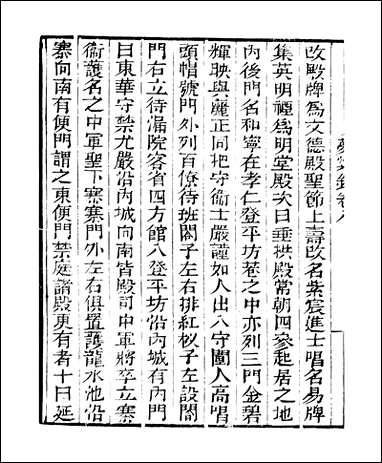 夢粱錄卷八
改殿牌爲文德殿聖節上壽改名紫宸進士唱名易牌
集英明禋爲明堂殿次曰垂拱殿常朝四參起居之地
內後門名和寧在孝仁登平坊巷之中亦列三門金碧
輝映與麗正同把守衞士嚴謹如人出入守闌人高唱
頭帽號門外列百僚待班閣子左右排紅杈子左設閤
門右立待漏院客省四方館入登平坊沿內城有內門
曰東華守禁尤嚴沿內城向南皆殿司中軍將卒立寨
衞護名之中軍聖下寨寨門外左右俱置護龍水池沿
寨向南有便門謂之東便門禁庭諸殿更有者十曰延